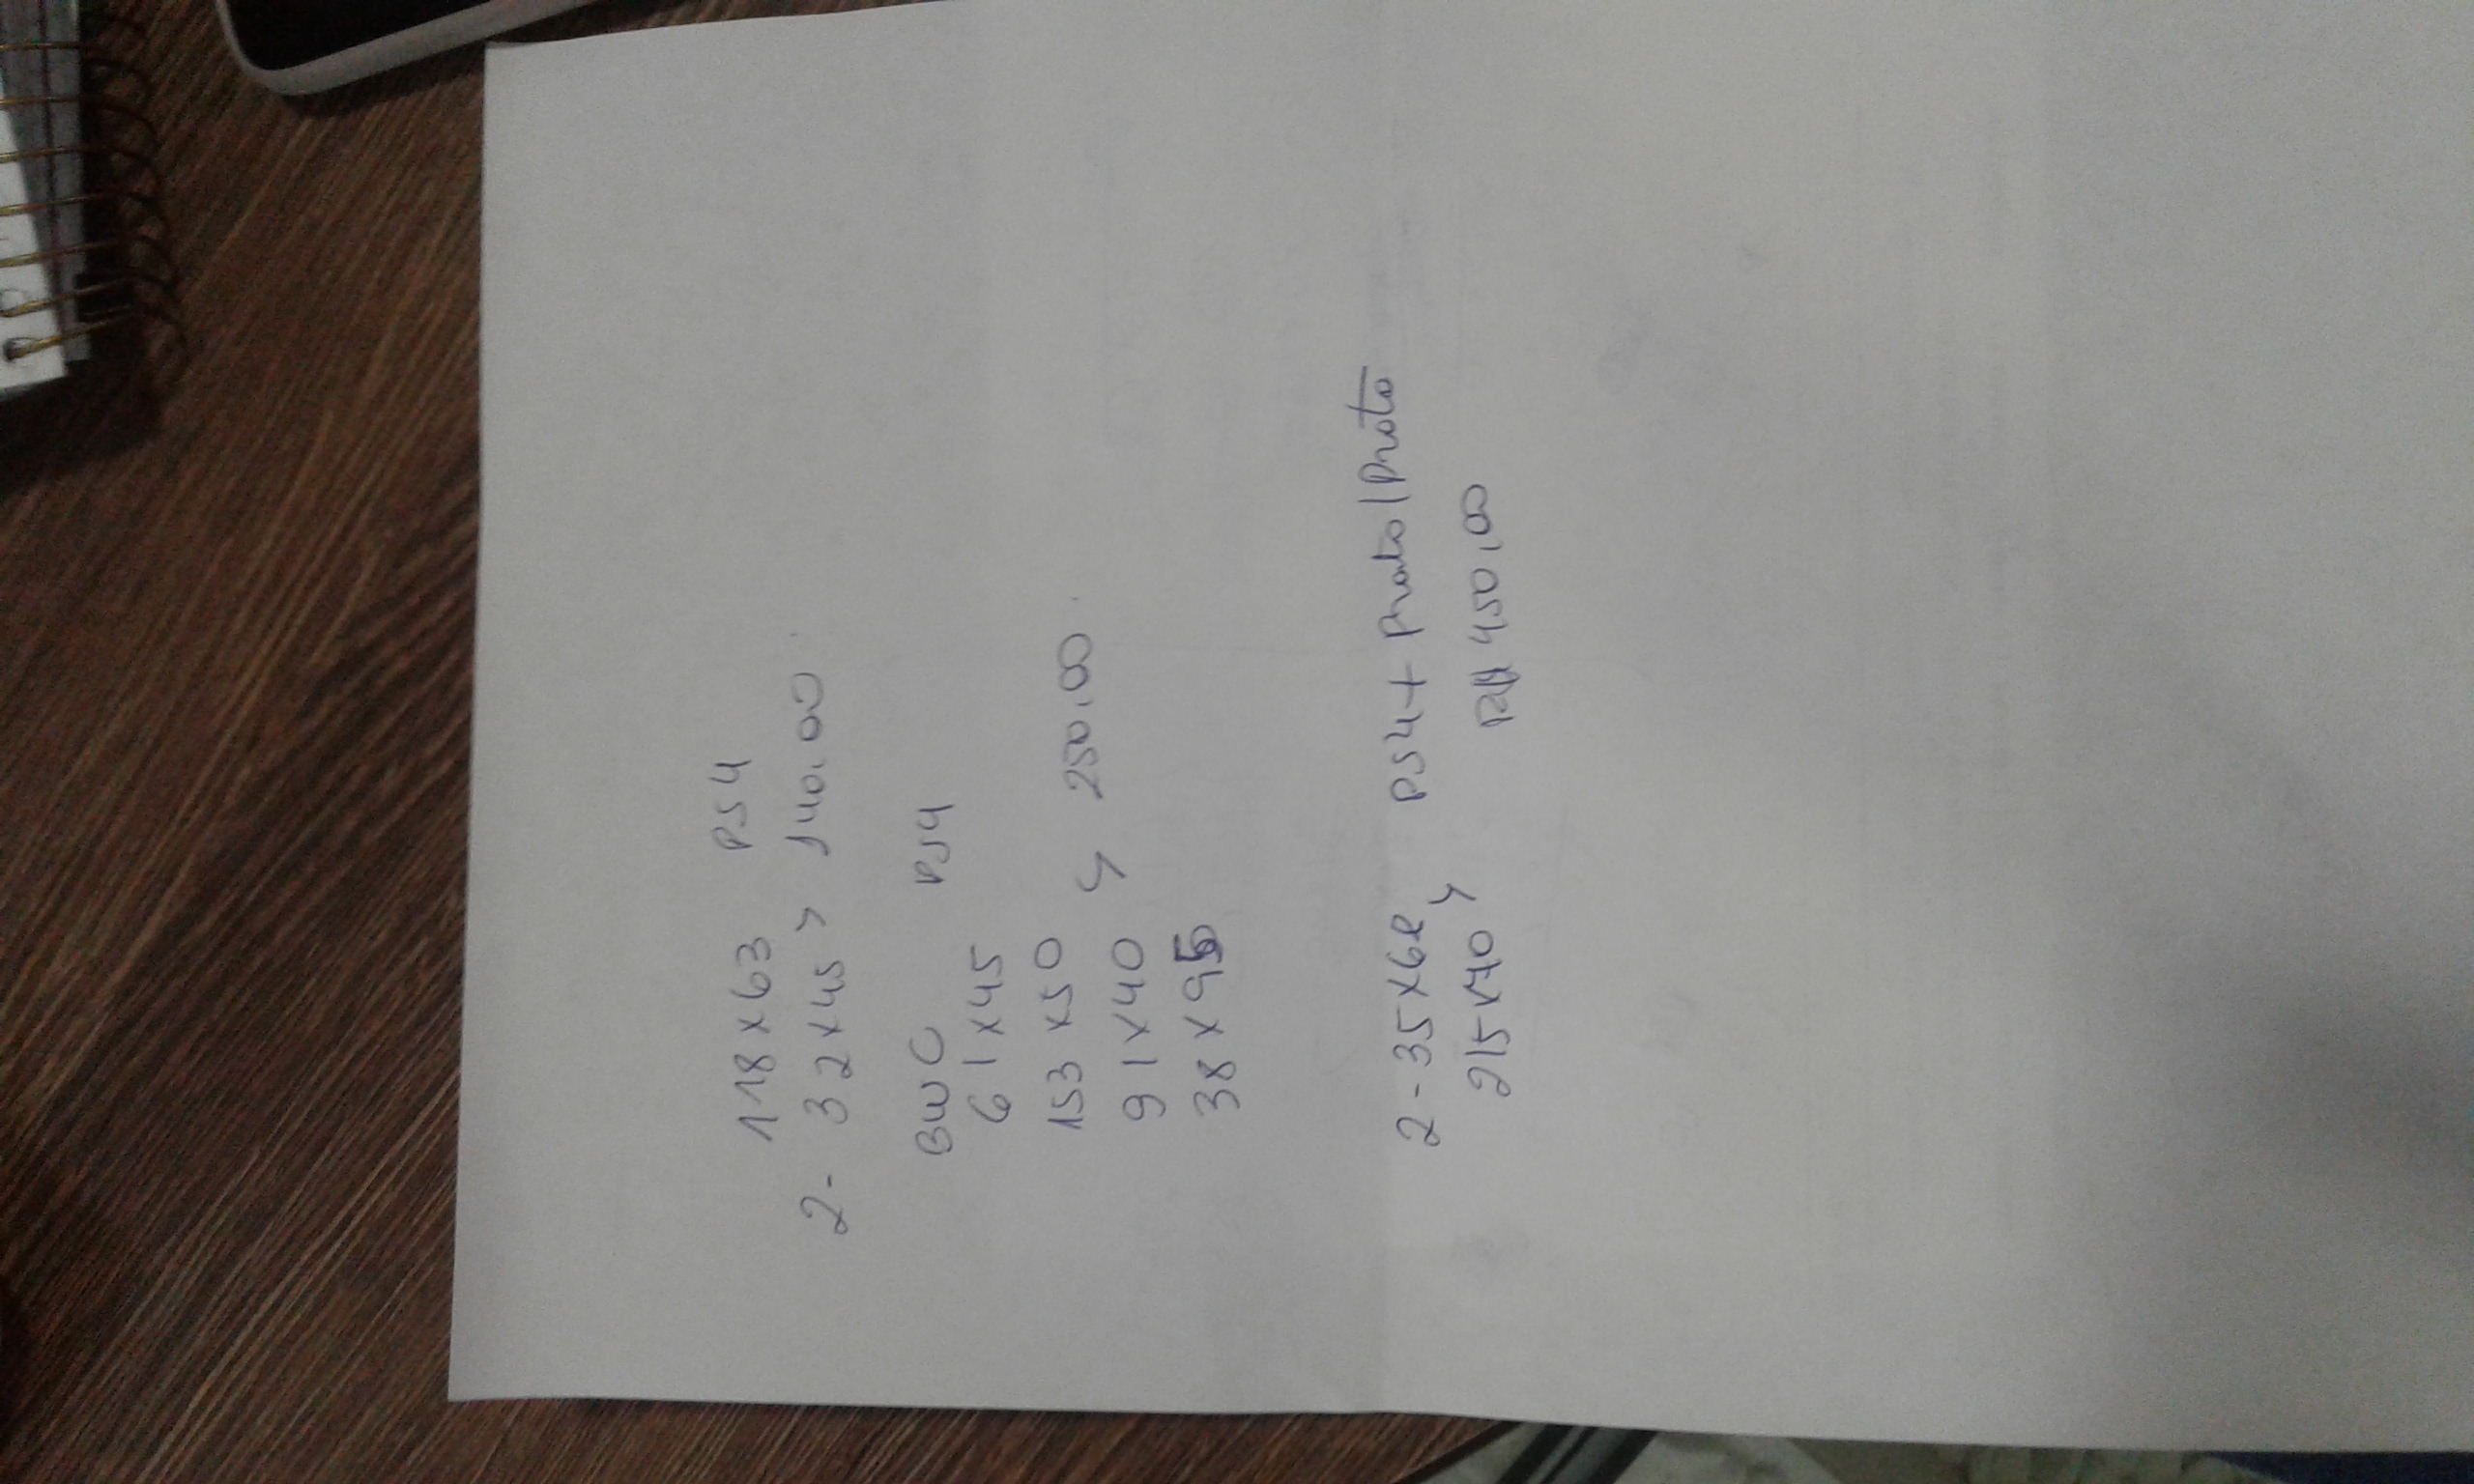 118x63 PS4
2- 32x45 > 140,00
BWC PS4
61x45
153x50
91x40 > 250,00
38x95
2-35x62 PS4+ Preto/Prata
215x40 > R$ 450,00